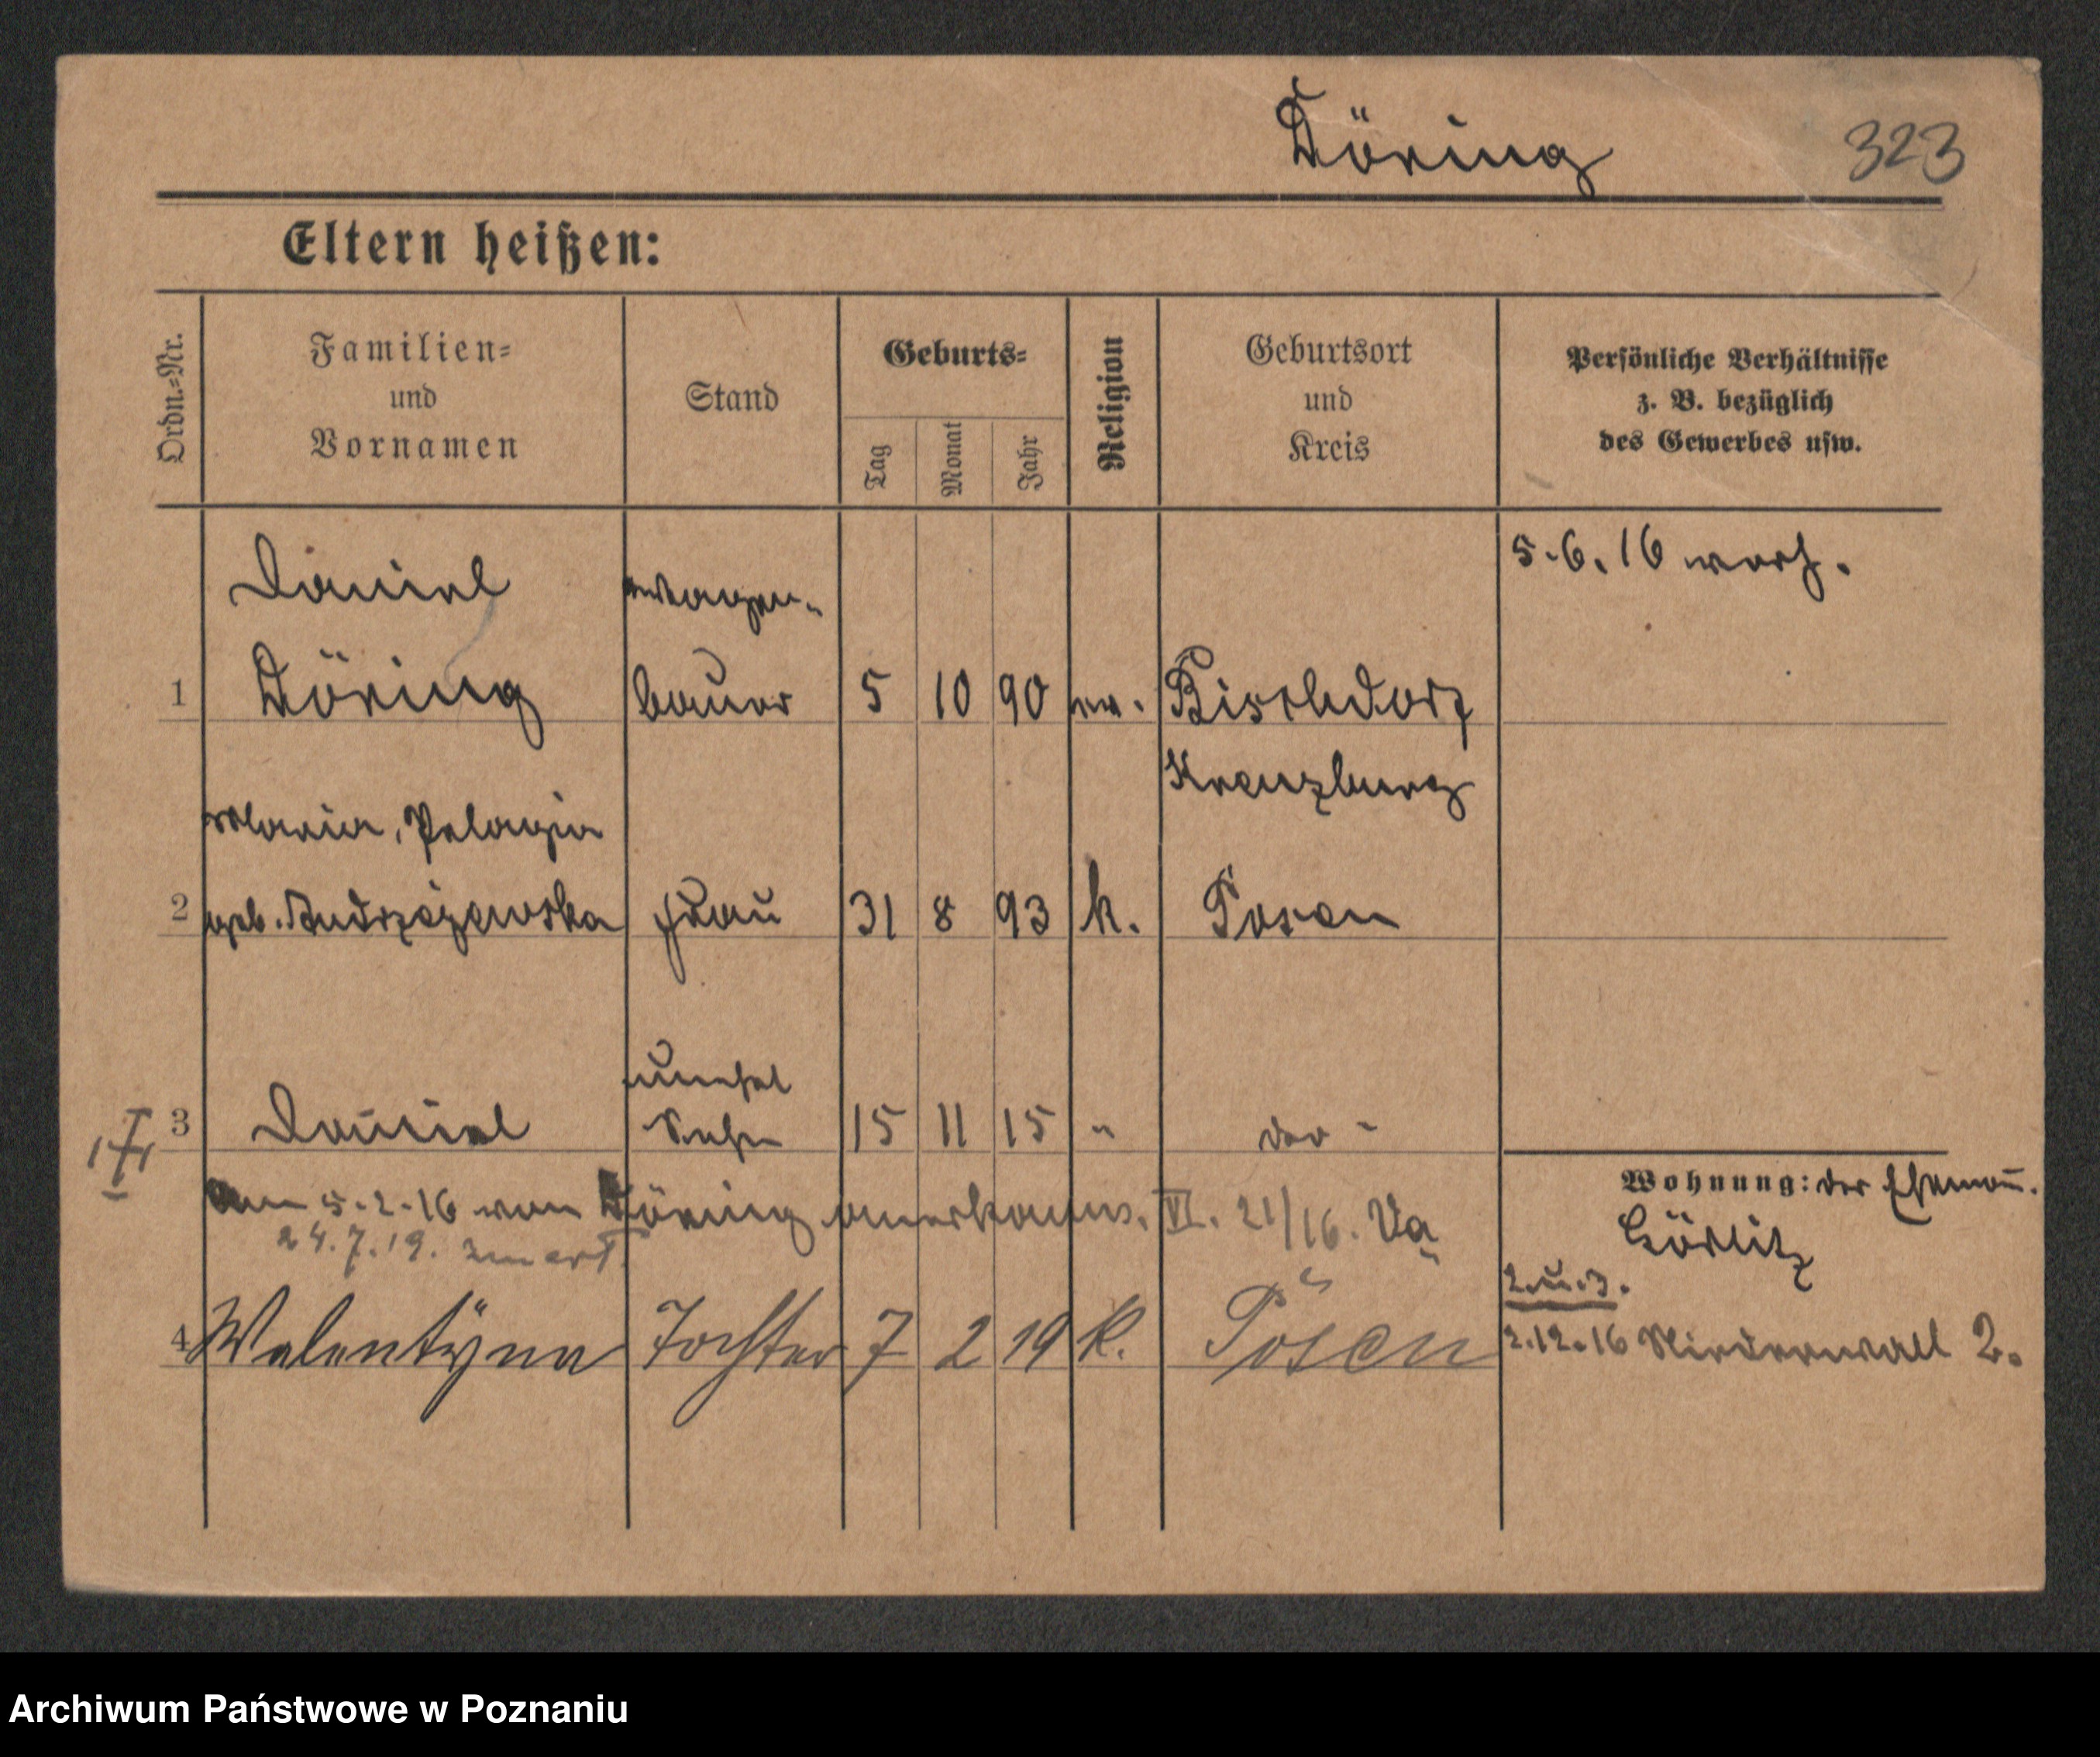 Döring 323
Eltern heißen:
Ordn.-Nr.
Familien-
und
Vornamen
Stand
Geburts-
Tag
Monat
Jahr
Religion
Geburtsort
und
Kreis
Persönliche Verhältnisse
z. B. bezüglich
des Gewerbes usw.
5.6.16
Daniel Wagen-
1 Döring bauer 5 10 90 ev. Bischdorf
Kreuzburg
Maria, Pelagia
2 geb. Andrzejewska Frau 31 8 93 k. Posen
unehel
3 Daniel Sohn 15 11 15 " dto "
Wohnung: der Ehemañ.
am 5.2.16 von Döring anerkannt. VI. 21/16. Va
Görlitz
24.7.19.
2. u. 3.
4 Walentyna Tochter 7 2 19 k. Posen
2.12.16 Niederwall 2.
Archiwum Państwowe w Poznaniu